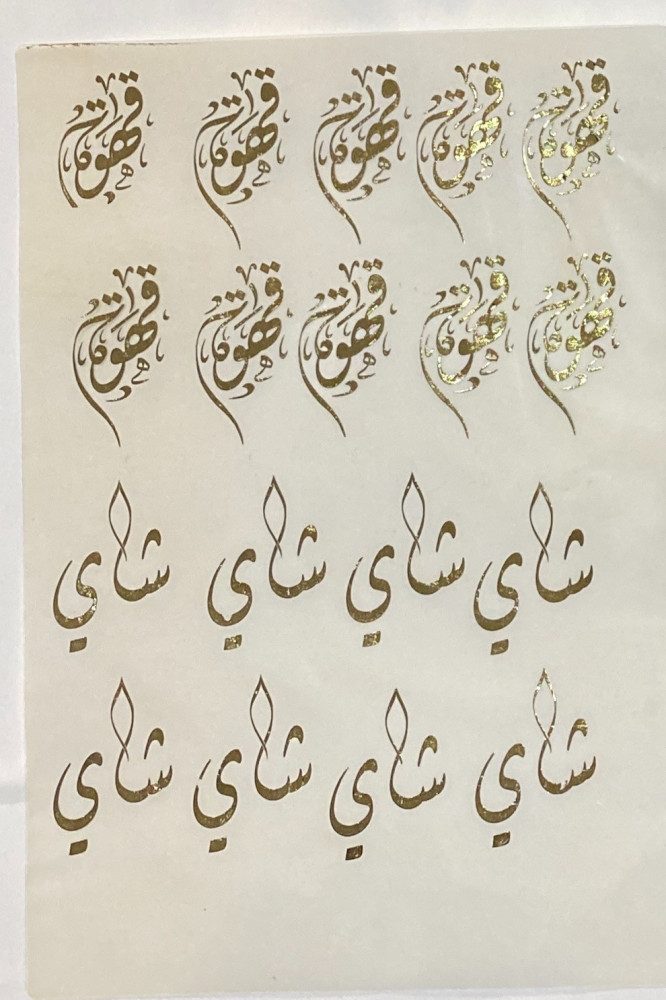 قهوة قهوة قهوة قهوة قهوة
قهوة قهوة قهوة قهوة قهوة
شاي شاي شاي شاي
شاي شاي شاي شاي